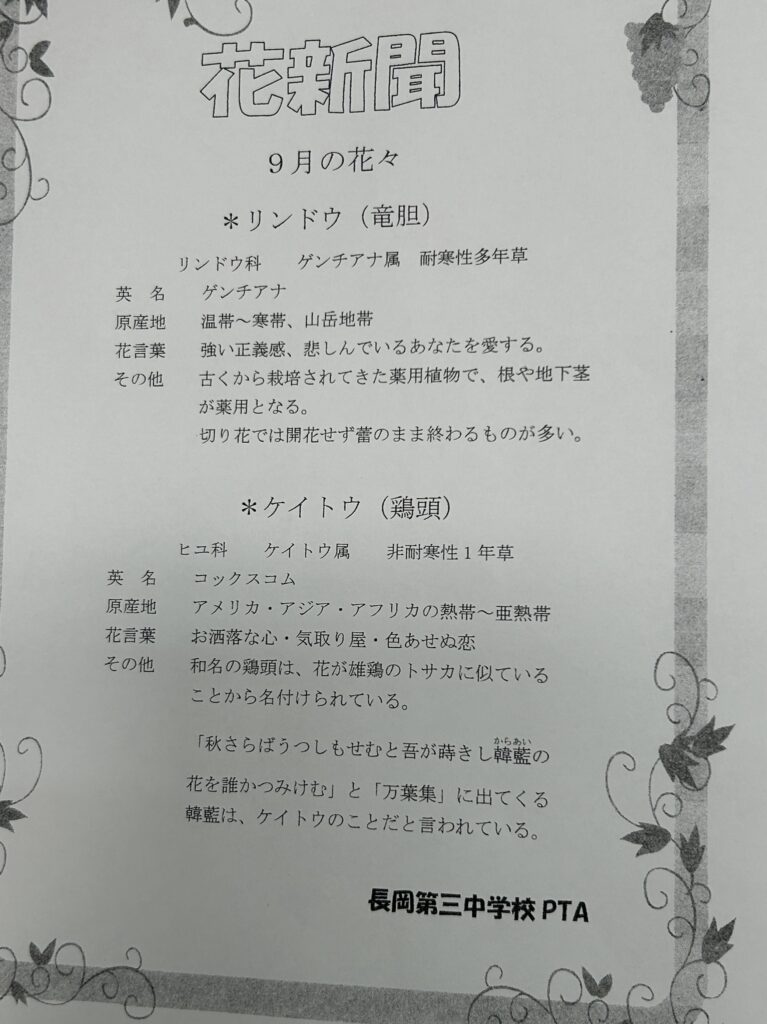 花新聞
9月の花々
＊リンドウ（竜胆）
リンドウ科　　ゲンチアナ属　耐寒性多年草
英　名　　ゲンチアナ
原産地　　温帯～寒帯、山岳地帯
花言葉　　強い正義感、悲しんでいるあなたを愛する。
その他　　古くから栽培されてきた薬用植物で、根や地下茎
が薬用となる。
切り花では開花せず蕾のまま終わるものが多い。
＊ケイトウ（鶏頭）
ヒユ科　　ケイトウ属　　非耐寒性１年草
英　名　　コックスコム
原産地　　アメリカ・アジア・アフリカの熱帯～亜熱帯
花言葉　　お洒落な心・気取り屋・色あせぬ恋
その他　　和名の鶏頭は、花が雄鶏のトサカに似ている
ことから名付けられている。
からあい
「秋さらばうつしもせむと吾が蒔きし韓藍の
花を誰かつみけむ」と「万葉集」に出てくる
韓藍は、ケイトウのことだと言われている。
長岡第三中学校 PTA